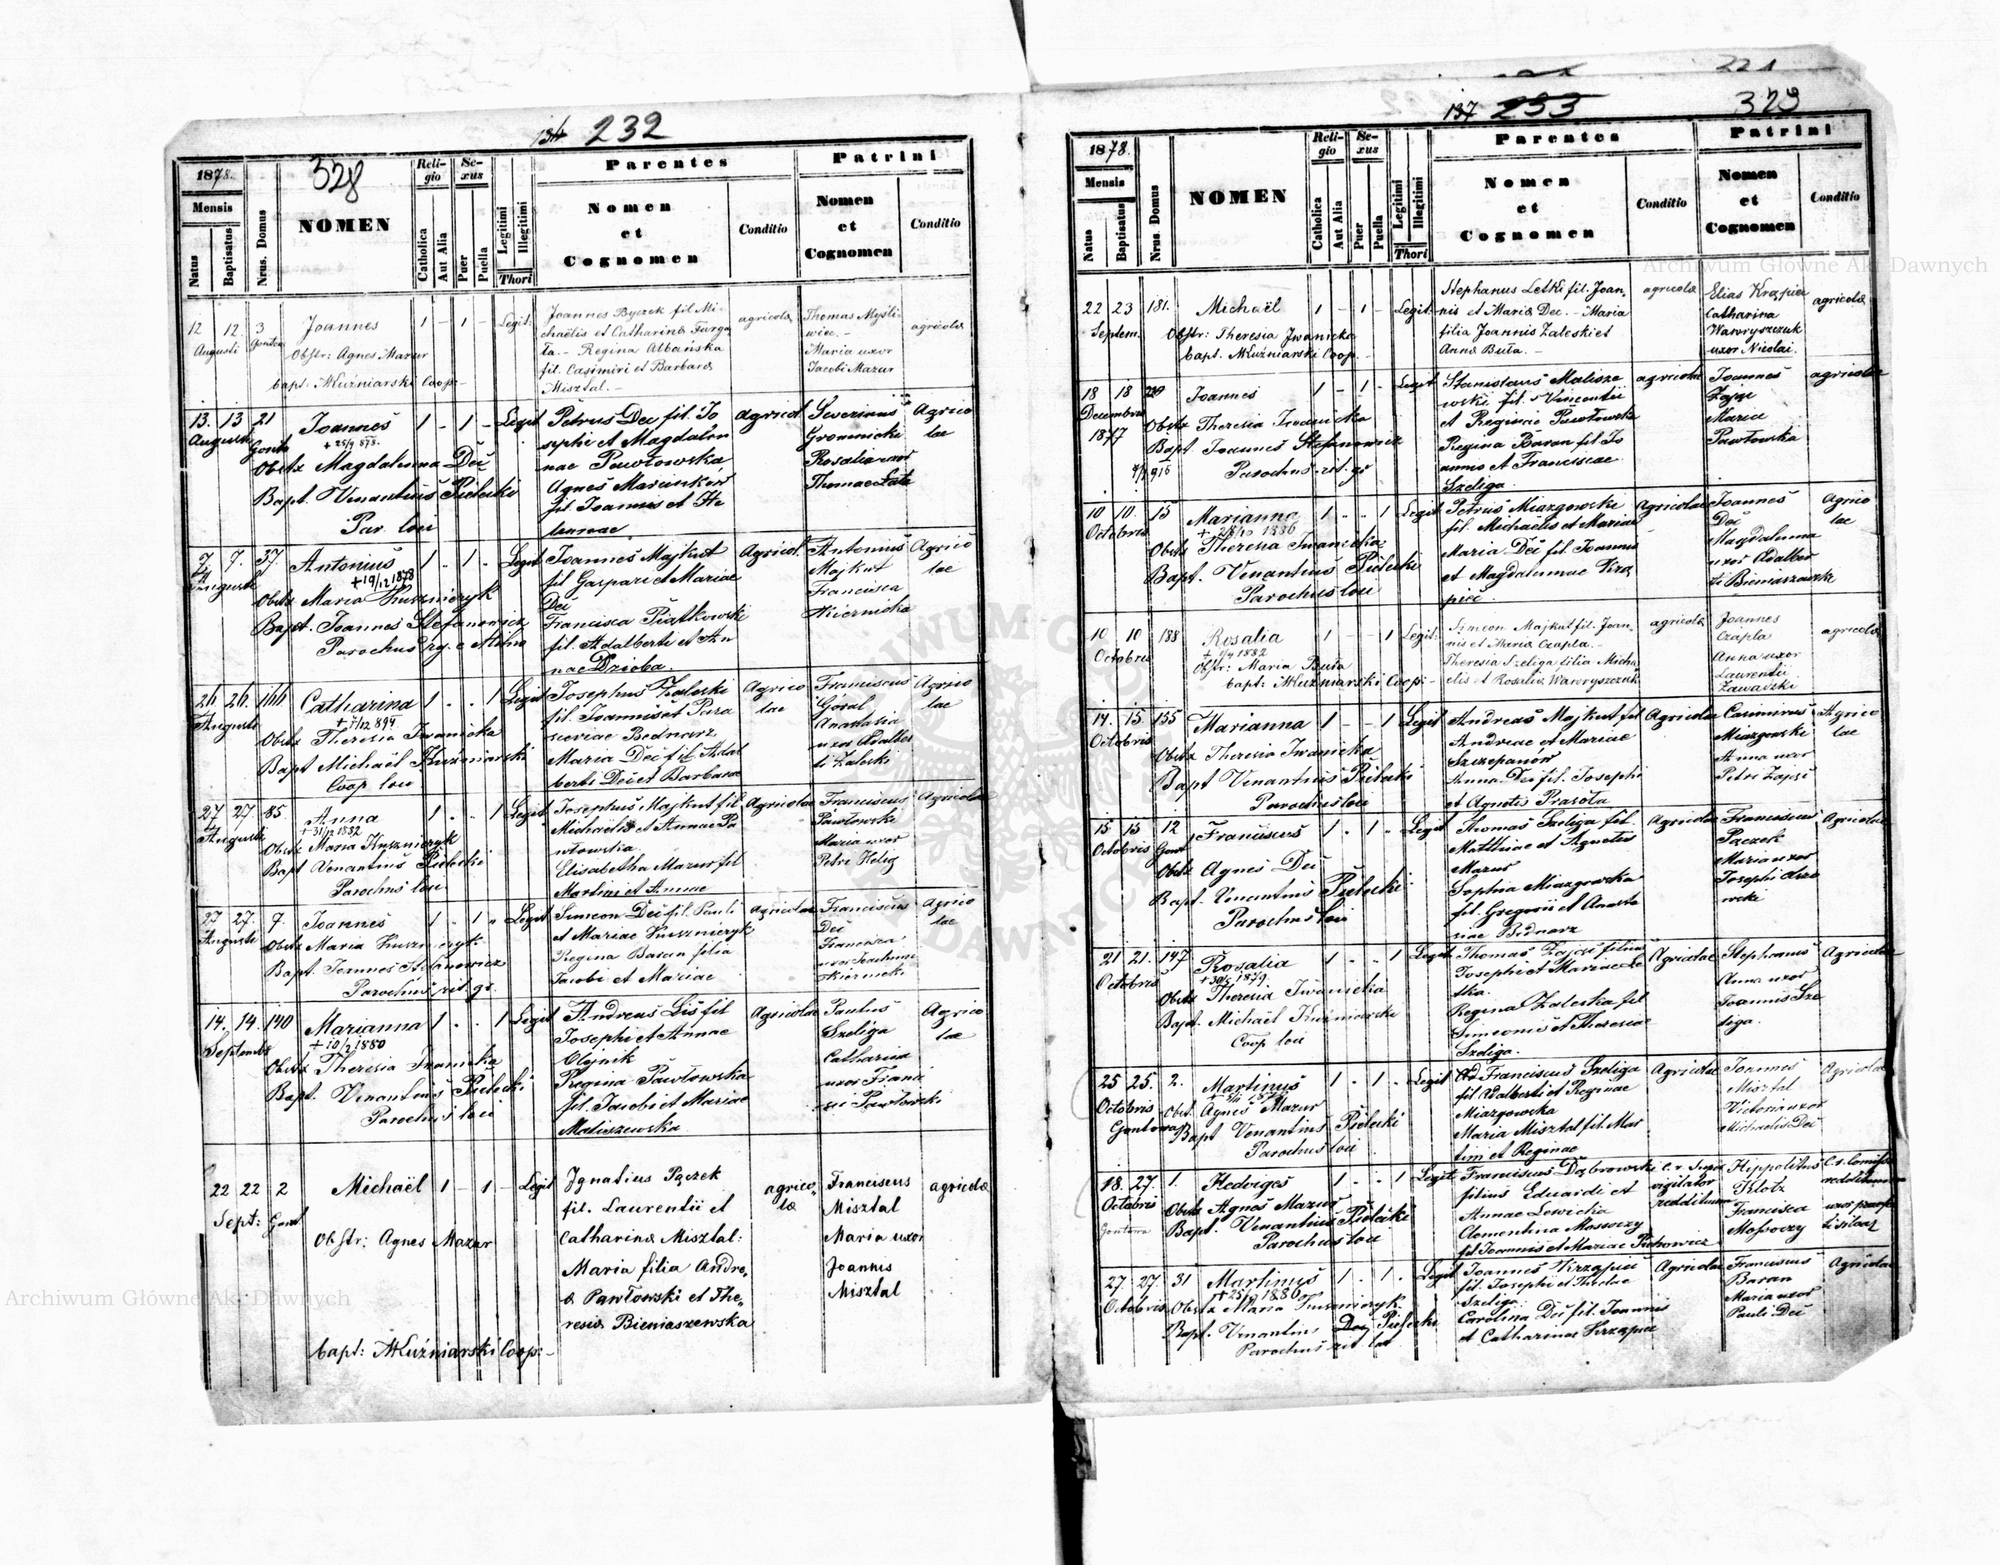 232
328
1878.
Mensis
Natus
Baptisatus
Nrus. Domus
NOMEN
Religio
Catholica
Aut Alia
Sexus
Puer
Puella
Legitimi
Illegitimi
Thori
Parentes
Nomen
et
Cognomen
Conditio
Patrini
Nomen
et
Cognomen
Conditio
12 12. 3 Joannes 1 - 1 - Legit:
Augusti
Obstr: Agnes Mazur
bapt: MKuźniarski Coop:-
Joannes Byczek fil. Mi-
chaëlis et Catharina Furga
ła. - Regina Albańska
fil. Casimiri et Barbara
Misztal. -
agricola
Thomas Myśli-
wiec. -
Maria uxor
Jacobi Mazur
agricola
13. 13 21 Joannes 1 - 1 - Legit
Augusti
+ 25/9 878.
Obstx Magdalenna Deć
Bapt. Venantius Pielecki
Par. loci
Petrus Deć fil. Jo
sephi et Magdalen
nae Pawłowska
Agnes Marcinków
fil. Joannis et He
lennae
Agricol
Severinus
Gromnicki
Rosalia uxor
Thomae Łata
Agrico
lae
7. 37. Antonius 1 . 1 . Legit
Augusti
+ 19/12 1878
Obstx Maria Kuszmeryk
Bapt. Joannes Stefanowicz
Joannes Majkut
fil Gaspari et Mariae
Deć
Francisca Piątkowski
fil. Adalberti et An
nae Dzioba.
Agricol
Antonius
Majkut
Francisca
Agrico
lae
26. 26. 166 Catharina 1 . . 1 Legit
Augusti
Obstx Theresia Iwanicka
Bapt Michaël Kuźniarski
Coop loci
Josephus Zaleski
fil. Joannis et Para
sceviae Bednarz
Maria Deć fil. Adal
berti Deć et Barbara
Agrico
lae
Franciscus
Góral
Anastasia
uxor Adalber
ti Zaleski
Agrico
lae
27 27. 85. Anna 1 . . 1 Legit
Augusti
+ 31/12 1882
Obstx Maria Kuszmeryk
Bapt Venantius Pielecki
Parochus loci
Josephus Majkut fil
Michaëlis et Annae Pa
włowska
Elisabetha Mazur fil
Martini et Annae
Agricolae
Franciscus
Pawłowski
Maria uxor
Petri
Agricolae
27 27. 7. Joannes 1 . 1 " Legit
Augusti
Obstx Maria
Bapt. Joannes Stefanowicz
Parochus rit. gr.
Simeon Deć fil. Pauli
et Mariae Kuszmeryk
Regina Baran filia
Jacobi et Mariae
Agricolae
Franciscus
Deć
Francisca
Agrico
lae
14. 14. 140 Marianna 1 . . 1 Legit
Septemb
+ 10/2 1880
Obstx Theresia Iwanicka
Bapt. Venantius Pielecki
Parochus loci
Andreas Lis fil
Josephi et Annae
Olejnik
Regina Pawłowska
fil. Jacobi et Mariae
Maliszewska
Agricolae
Paulus
Szeliga
Catharina
uxor Franci
sci Pawłowski
Agrico
lae
22 22 2 Michaël 1 - 1 - Legit
Sept: Gont
Obstr: Agnes Mazur
bapt: MKuźniarski Coop:-
Ignatius Pączek
fil. Laurentii et
Catharina Misztal:
Maria filia Andre,
a Pawłowski et The,
resia Bieniaszewska
agrico,
la
Franciscus
Misztal
Maria uxor
Joannis
Misztal
agricola
137 233
329
1878.
Mensis
Natus
Baptisatus
Nrus. Domus
NOMEN
Religio
Catholica
Aut Alia
Sexus
Puer
Puella
Legitimi
Illegitimi
Thori
Parentes
Nomen
et
Cognomen
Conditio
Patrini
Nomen
et
Cognomen
Conditio
22 23 181. Michaël 1 - 1 - Legit:
Septem.
Obstr: Theresia Iwanicka
bapt. MKuźniarski Coop.
Stephanus Letki fil. Joan-
nis et Maria Deć. - Maria
filia Joannis Zaleski et
Anna Buła. -
agricola
Elias Krzpiea
Catharina
Wawryszczuk
uxor Nicolai.
agricola
18 18 Joannes 1 - 1 - Legit
Decembris
1877
Obstx Theresia Iwanicka
Bapt. Joannes Stefanowicz
Parochus rit. gr
Stanislaus Malisze
wski fil. Vincentii
et Reginae Pawłowska
Regina Baran fil Jo
annis et Franciscae
Szeliga
agricolae
Joannes
Zając
Maria
Pawłowska
agricolae
10 10. 15 Marianna 1 . . 1 Legit
Octobris
Obstx Theresia Iwanicka
Bapt. Venantius Pielecki
Parochus loci
Petrus Miazgowski
fil. Michaëlis et Mariae
Maria Deć fil Joannis
et Magdalennae Krzą
pieć.
Agricolae
Joannes
Deć
Magdalenna
uxor Adalber
ti Bieniaszewski
Agrico
lae
10 10 188 Rosalia 1 - - 1 Legit:
Octobris
Obstr: Maria Buła
bapt: MKuźniarski Coop:-
Simeon Majkut fil. Joan-
nis et Maria Czapla. -
Theresia Szeliga filia Micha-
elis et Rosalia Wawryszczuk
agricola
Joannes
Czapla
Anna uxor
Laurentii
Zawadzki
agricola
14. 15. 155 Marianna 1 - - 1 Legit
Octobris
Obstx Theresia Iwanicka
Bapt Venantius Pielecki
Parochus loci
Andreas Majkut fil
Andreae et Mariae
Szczepanów
Anna Deć fil. Josephi
et Agnetis Prasoła
Agricolae
Casimirus
Miazgowski
Anna uxor
Petri Zając
Agrico
lae
15 15 12 Franciscus 1 . 1 " Legit
Octobris Gont
Obstx Agnes Deć
Bapt. Venantius Pielecki
Parochus loci
Thomas Szeliga fil.
Matthiae et Agnetis
Mazur
Sophia Miazgowska
fil. Gregorii et Anasta
siae Bednarz
Agricolae
Franciscus
Pączek
Maria uxor
Josephi
Agricolae
21 21. 147 Rosalia 1 . . 1 Legit
Octobris
Obstx Theresia Iwanicka
Bapt. Michaël Kuźniarski
Coop loci
Thomas Zając filius
Josephi et Mariae Le
tka.
Regina Zaleska fil
Simeonis et Theresiae
Szeliga.
Agricolae
Stephanus
Anna uxor
Joannis Sze
liga.
Agricolae
25 25. 2. Martinus 1 . 1 . Legit
Octobris
Gontowa
Obst. Agnes Mazur
Bapt Venantius Pielecki
Parochus loci
Franciscus Szeliga
fil Adalberti et Reginae
Miazgowska
Maria Misztal fil. Mar
tini et Reginae
Agricolae
Joannes
Misztal
Victoria uxor
Michaelis Deć
Agricolae
18. 27. 1. Hedviges 1 . . 1 Legit
Octobris
Gontowa
Obstx Agnes Mazur
Bapt. Venantius Pielecki
Parochus loci
Franciscus Dąbrowski
filius Eduardi et
Annae Lewicka
Clementina Mossoczy
fil Joannis et Mariae Piotrowicz
vigilator
reddituum
Hippolitus
Klotz
Francisca
Mossoczy
27. 27. 31 Martinus 1 . 1 . Legit
Octobris
+ 25/9 1886
Obstx Maria Kuszmeryk
Bapt. Venantius Pielecki
Parochus rit lat
Joannes Krząpieć
fil. Josephi et Theclae
Szeliga.
Carolina Deć fil. Joannis
et Catharinae Krząpieć
Agricolae
Franciscus
Baran
Maria uxor
Pauli Deć
Agricolae
Archiwum Główne Akt Dawnych
Archiwum Główne Akt Dawnych